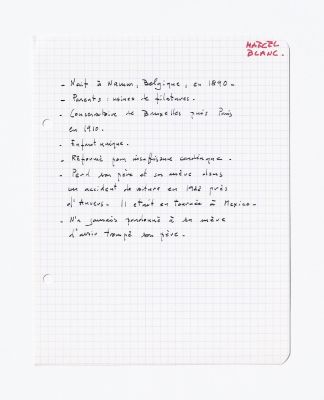 MARCEL
BLANC.
- Naît à Namur, Belgique, en 1890 -
- Parents : usines de filatures.
- Conservatoire de Bruxelles puis Paris
en 1910.
- Enfant unique.
- Réformé pour insuffisance cardiaque.
- Perd son père et sa mère dans
un accident de voiture en 1922 près
d'Anvers. Il était en tournée à Mexico -
- N'a jamais pardonné à sa mère
d'avoir trompé son père.